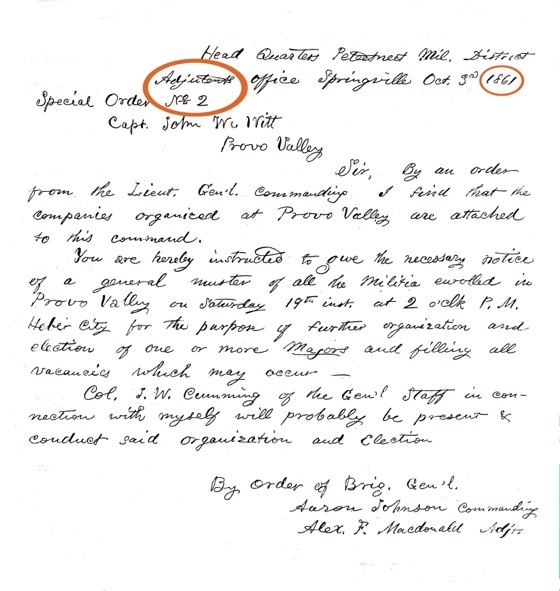 Head Quarters Peteetneet Mil. District
Adjutants Office Springville Oct. 3rd 1861
Special Order No 2
Capt. John W. Witt
Provo Valley
Sir, By an order
from the Lieut. Gen'l. Commanding I find that the
companies organiced at Provo Valley are attached
to this command.
You are hereby instructed to give the necessary notice
of a general muster of all the Militia enrolled in
Provo Valley on Saturday 19th inst. at 2 o'clk P.M.
Heber City for the purpose of further organization and
election of one or more Majors and filling all
vacancies which may occur —
Col. J. W. Cumming of the Gen'l Staff in con-
nection with myself will probably be present &
conduct said organization and Election
By Order of Brig. Gen'l.
Aaron Johnson Commanding
Alex. F. Macdonald Adjt.